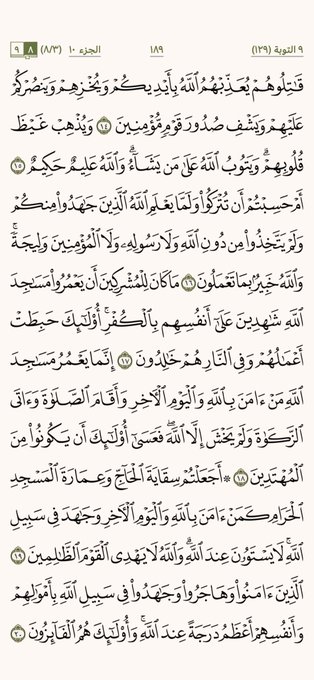 ٩ التوبة (١٢٩) ١٨٩ الجزء ١٠ (٨/٣) ٨ ٩
قَٰتِلُوهُمْ يُعَذِّبْهُمُ ٱللَّهُ بِأَيْدِيكُمْ وَيُخْزِهِمْ وَيَنصُرْكُمْ
عَلَيْهِمْ وَيَشْفِ صُدُورَ قَوْمٍ مُّؤْمِنِينَ ١٤ وَيُذْهِبْ غَيْظَ
قُلُوبِهِمْ ۗ وَيَتُوبُ ٱللَّهُ عَلَىٰ مَن يَشَآءُ ۗ وَٱللَّهُ عَلِيمٌ حَكِيمٌ ١٥
أَمْ حَسِبْتُمْ أَن تُتْرَكُوا۟ وَلَمَّا يَعْلَمِ ٱللَّهُ ٱلَّذِينَ جَٰهَدُوا۟ مِنكُمْ
وَلَمْ يَتَّخِذُوا۟ مِن دُونِ ٱللَّهِ وَلَا رَسُولِهِۦ وَلَا ٱلْمُؤْمِنِينَ وَلِيجَةً ۚ
وَٱللَّهُ خَبِيرٌۢ بِمَا تَعْمَلُونَ ١٦ مَا كَانَ لِلْمُشْرِكِينَ أَن يَعْمُرُوا۟ مَسَٰجِدَ
ٱللَّهِ شَٰهِدِينَ عَلَىٰٓ أَنفُسِهِم بِٱلْكُفْرِ ۚ أُو۟لَٰٓئِكَ حَبِطَتْ
أَعْمَٰلُهُمْ وَفِى ٱلنَّارِ هُمْ خَٰلِدُونَ ١٧ إِنَّمَا يَعْمُرُ مَسَٰجِدَ
ٱللَّهِ مَنْ ءَامَنَ بِٱللَّهِ وَٱلْيَوْمِ ٱلْءَاخِرِ وَأَقَامَ ٱلصَّلَوٰةَ وَءَاتَى
ٱلزَّكَوٰةَ وَلَمْ يَخْشَ إِلَّا ٱللَّهَ ۖ فَعَسَىٰٓ أُو۟لَٰٓئِكَ أَن يَكُونُوا۟ مِنَ
ٱلْمُهْتَدِينَ ١٨ ۞ أَجَعَلْتُمْ سِقَايَةَ ٱلْحَآجِّ وَعِمَارَةَ ٱلْمَسْجِدِ
ٱلْحَرَامِ كَمَنْ ءَامَنَ بِٱللَّهِ وَٱلْيَوْمِ ٱلْءَاخِرِ وَجَٰهَدَ فِى سَبِيلِ
ٱللَّهِ ۚ لَا يَسْتَوُۥنَ عِندَ ٱللَّهِ ۗ وَٱللَّهُ لَا يَهْدِى ٱلْقَوْمَ ٱلظَّٰلِمِينَ ١٩
ٱلَّذِينَ ءَامَنُوا۟ وَهَاجَرُوا۟ وَجَٰهَدُوا۟ فِى سَبِيلِ ٱللَّهِ بِأَمْوَٰلِهِمْ
وَأَنفُسِهِمْ أَعْظَمُ دَرَجَةً عِندَ ٱللَّهِ ۚ وَأُو۟لَٰٓئِكَ هُمُ ٱلْفَآئِزُونَ ٢٠